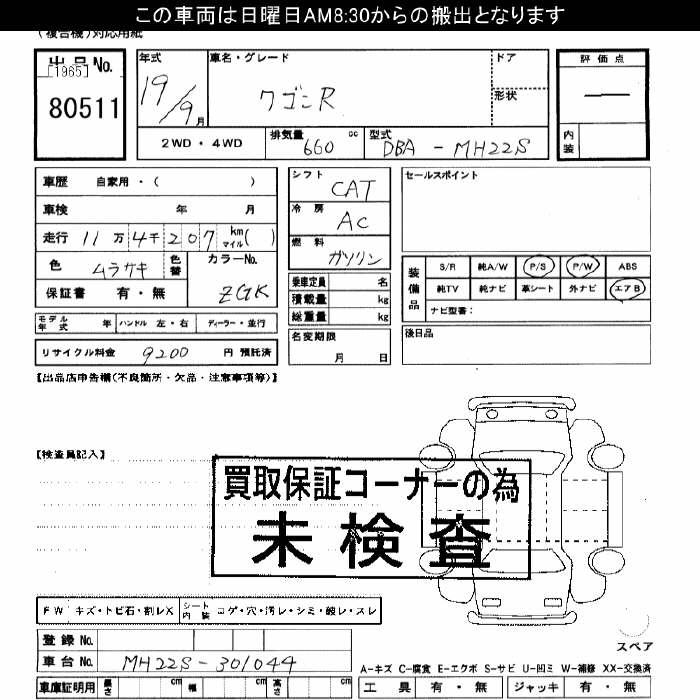 この車両は日曜日AM8:30からの搬出となります
(複合機)対応用紙
出品No.
[1965]
80511
年式
19/9月
車名・グレード
ワゴンR
ドア
形状
評価点
内装
2WD・4WD
排気量 660 cc
型式 DBA - MH22S
車歴 自家用・( )
車検 年 月
走行 11万4千207 km マイル( )
色 ムラサキ 色替
カラーNo. ZGK
保証書 有・無
シフト CAT
冷房 AC
燃料 ガソリン
乗車定員 名
積載量 kg
総重量 kg
セールスポイント
装備品
S/R 純A/W P/S P/W ABS
純TV 純ナビ 革シート 外ナビ エアB
ナビ型番:
モデル年式 年 ハンドル 左・右 ディーラー・並行
名変期限
月 日
後日品
リサイクル料金 9200 円 預託済
【出品店申告欄(不良箇所・欠品・注意事項等)】
【検査員記入】
買取保証コーナーの為
未検査
FW キズ・トビ石・割レX シート内装 コゲ・穴・汚レ・シミ・破レ・スレ
登録No.
車台No. MH22S-301044
スペア
A-キズ C-腐食 E-エクボ S-サビ U-凹ミ W-補修 XX-交換済
車庫証明用 長さ cm 幅 cm 高さ cm
工具 有・無 ジャッキ 有・無